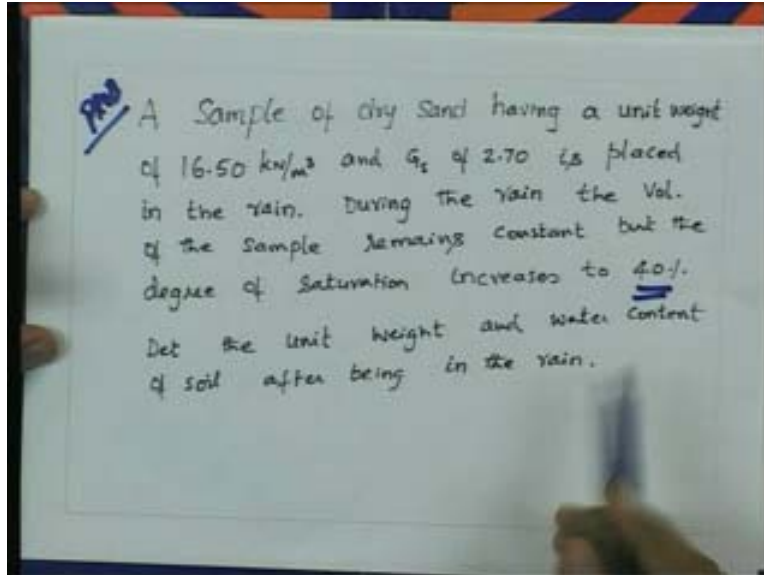 A Sample of dry Sand having a unit weight
of 16.50 kN/m³ and Gs of 2.70 is placed
in the rain. During the rain the Vol.
of the Sample remains Constant but the
degree of Saturation increases to 40%.
Det the unit weight and water Content
of soil after being in the rain.